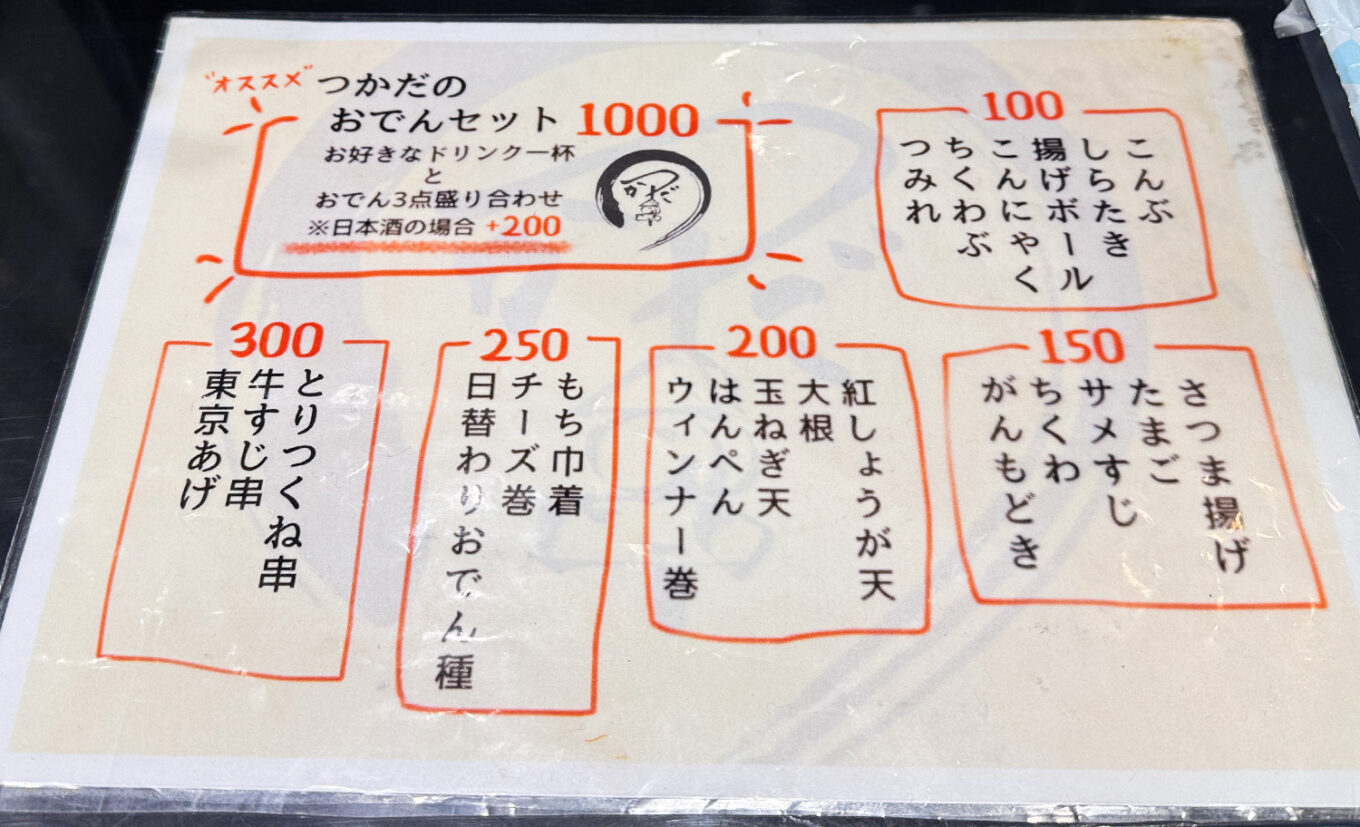 "オススメ"
つかだの
おでんセット 1000
お好きなドリンク一杯
と
おでん3点盛り合わせ
※日本酒の場合 +200
つかだ
100
こんぶ
しらたき
揚げボール
こんにゃく
ちくわぶ
つみれ
150
さつま揚げ
たまご
サメすじ
ちくわ
がんもどき
200
紅しょうが天
大根
玉ねぎ天
はんぺん
ウィンナー巻
250
もち巾着
チーズ巻
日替わりおでん種
300
とりつくね串
牛すじ串
東京あげ